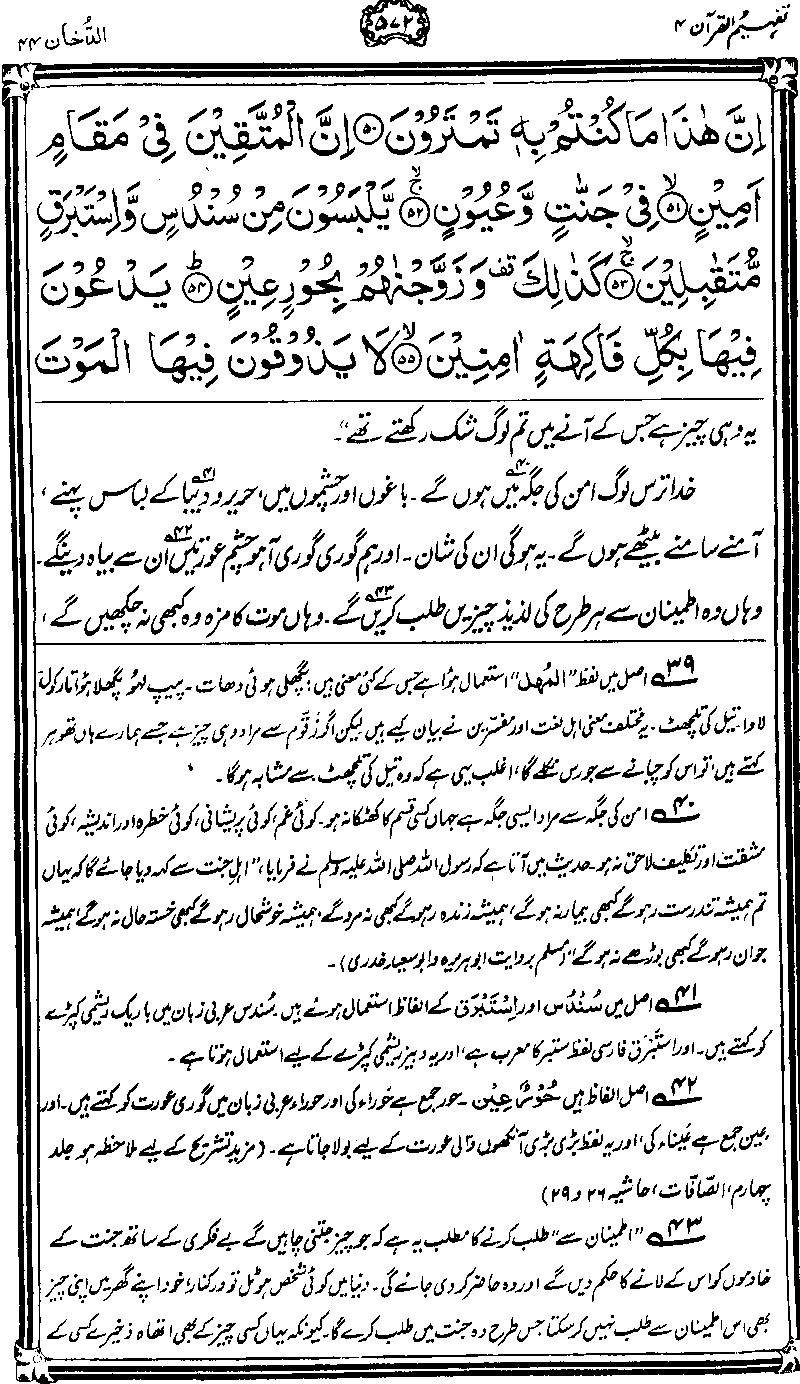 تفہیم القرآن ۴
۵۷۲
الدُّخان ۴۴
اِنَّ هٰذَا مَا كُنْتُمْ بِهٖ تَمْتَرُوْنَ ۝۵۰ اِنَّ الْمُتَّقِيْنَ فِيْ مَقَامٍ
اَمِيْنٍ ۝۵۱ۙ فِيْ جَنّٰتٍ وَّعُيُوْنٍ ۝۵۲ۚۙ يَّلْبَسُوْنَ مِنْ سُنْدُسٍ وَّاِسْتَبْرَقٍ
مُّتَقٰبِلِيْنَ ۝۵۳ۚۙ كَذٰلِكَ قف وَزَوَّجْنٰهُمْ بِحُوْرٍ عِيْنٍ ۝۵۴ؕ يَدْعُوْنَ
فِيْهَا بِكُلِّ فَاكِهَةٍ اٰمِنِيْنَ ۝۵۵ۙ لَا يَذُوْقُوْنَ فِيْهَا الْمَوْتَ
یہ وہی چیز ہے جس کے آنے میں تم لوگ شک رکھتے تھے“۔
خدا ترس لوگ امن کی جگہ میں۴۰ ہوں گے۔ باغوں اور چشموں میں، حریر و دیبا۴۱ کے لباس پہنے،
آمنے سامنے بیٹھے ہوں گے۔ یہ ہوگی ان کی شان۔ اور ہم گوری گوری آہو چشم عورتیں۴۲ ان سے بیاہ دینگے۔
وہاں وہ اطمینان سے ہر طرح کی لذیذ چیزیں طلب کریں۴۳ گے۔ وہاں موت کا مزہ وہ کبھی نہ چکھیں گے،
۳۹؎ اصل میں لفظ ”المُهل“ استعمال ہوا ہے جس کے کئی معنی ہیں: پگھلی ہوئی دھات۔ پیپ لہو پگھلا ہوا تارکول۔
لاوا۔ تیل کی تلچھٹ۔ یہ مختلف معنی اہل لغت اور مفسّرین نے بیان کیے ہیں لیکن اگر زقّوم سے مراد وہی چیز ہے جسے ہمارے ہاں تھوہر
کہتے ہیں، تو اس کو چبانے سے جو رس نکلے گا، اغلب یہی ہے کہ وہ تیل کی تلچھٹ سے مشابہ ہوگا۔
۴۰؎ امن کی جگہ سے مراد ایسی جگہ ہے جہاں کسی قسم کا کھٹکا نہ ہو۔ کوئی غم، کوئی پریشانی، کوئی خطرہ اور اندیشہ، کوئی
مشقت اور تکلیف لاحق نہ ہو۔ حدیث میں آتا ہے کہ رسول اللہ صلی اللہ علیہ وسلم نے فرمایا، ”اہلِ جنت سے کہہ دیا جائے گا کہ یہاں
تم ہمیشہ تندرست رہو گے کبھی بیمار نہ ہوگے، ہمیشہ زندہ رہو گے کبھی نہ مرو گے، ہمیشہ خوشحال رہو گے کبھی خستہ حال نہ ہوگے، ہمیشہ
جوان رہو گے کبھی بوڑھے نہ ہو گے“ (مسلم بروایت ابوہریرہ و ابو سعید خدری)۔
۴۱؎ اصل میں سُنْدُس اور اِسْتَبْرَق کے الفاظ استعمال ہوئے ہیں۔ سُندس عربی زبان میں باریک ریشمی کپڑے
کو کہتے ہیں۔ اور استَبْرَق فارسی لفظ ستبر کا معرب ہے، اور یہ دبیز ریشمی کپڑے کے لیے استعمال ہوتا ہے۔
۴۲؎ اصل الفاظ ہیں حُوْرٌ عِيْن۔ حور جمع ہے حَوراء کی اور حوراء عربی زبان میں گوری عورت کو کہتے ہیں۔ اور
عِین جمع ہے عَیناء کی، اور یہ لفظ بڑی بڑی آنکھوں والی عورت کے لیے بولا جاتا ہے۔ (مزید تشریح کے لیے ملاحظہ ہو جلد
چہارم، الصّافّات، حاشیہ ۲۶ و ۲۹)
۴۳؎ ”اطمینان سے“ طلب کرنے کا مطلب یہ ہے کہ جو چیز جتنی چاہیں گے بے فکری کے ساتھ جنت کے
خادموں کو اس کے لانے کا حکم دیں گے اور وہ حاضر کر دی جائے گی۔ دنیا میں کوئی شخص ہوٹل تو درکنار، خود اپنے گھر میں اپنی چیز
بھی اس اطمینان سے طلب نہیں کر سکتا جس طرح وہ جنت میں طلب کرے گا۔ کیونکہ یہاں کسی چیز کے بھی اتھاہ ذخیرے کسی کے